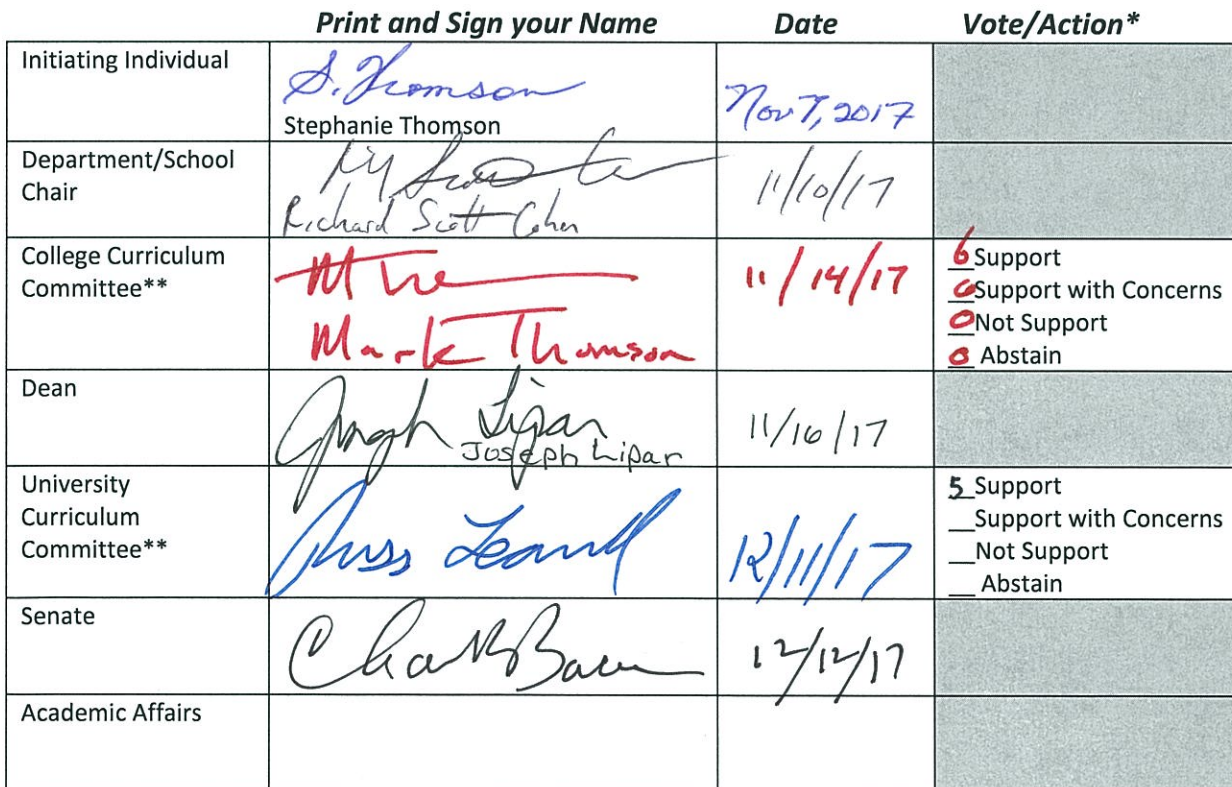 Print and Sign your Name Date Vote/Action*
Initiating Individual
S. Thomson
Stephanie Thomson
Nov 7, 2017
Department/School
Chair
Richard Scott Cohen
11/10/17
College Curriculum
Committee**
Mark Thomson
11/14/17
6 Support
0 Support with Concerns
0 Not Support
0 Abstain
Dean
Joseph Lipar
Joseph Lipar
11/16/17
University
Curriculum
Committee**
Russ
12/11/17
5 Support
__Support with Concerns
__Not Support
__ Abstain
Senate
12/12/17
Academic Affairs